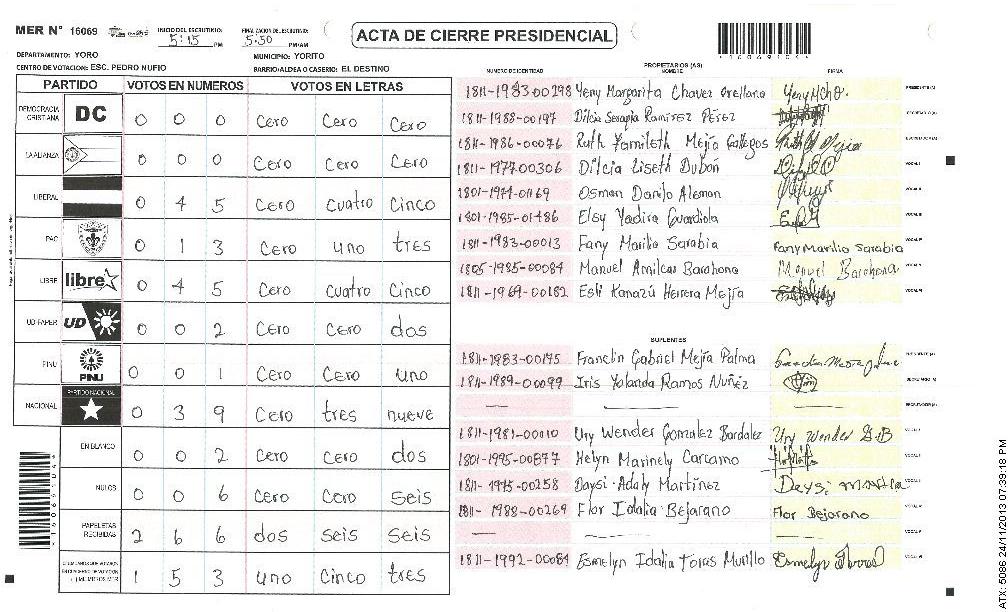 MER N° 16069 INICIO DEL ESCRUTINIO: 5:15 PM FINALIZACION DEL ESCRUTINIO: 5:50 PM/AM
ACTA DE CIERRE PRESIDENCIAL
DEPARTAMENTO: YORO MUNICIPIO: YORITO
CENTRO DE VOTACION: ESC. PEDRO NUFIO BARRIO/ALDEA O CASERIO: EL DESTINO
PARTIDO VOTOS EN NUMEROS VOTOS EN LETRAS
DEMOCRACIA CRISTIANA DC 0 0 0 Cero Cero Cero
LA ALIANZA 0 0 0 Cero Cero Cero
LIBERAL 0 4 5 Cero Cuatro Cinco
PAC 0 1 3 Cero uno tres
LIBRE libre 0 4 5 Cero Cuatro Cinco
UD-FAPER UD 0 0 2 Cero Cero dos
PINU PINU 0 0 1 Cero Cero uno
NACIONAL PARTIDO NACIONAL 0 3 9 Cero tres nueve
EN BLANCO 0 0 2 Cero Cero dos
NULOS 0 0 6 Cero Cero Seis
PAPELETAS RECIBIDAS 2 6 6 dos seis Seis
1 5 3 uno Cinco tres
PROPIETARIOS (AS)
NUMERO DE IDENTIDAD NOMBRE FIRMA
1811-1983-00298 Yeny Margarita Chavez Orellana PRESIDENTE (A)
1811-1988-00197 Dilcia Serapia Ramirez Pérez SECRETARIO (A)
1811-1986-00076 Ruth Yamileth Mejía Gallegos
1811-1977-00306 Dilcia Liseth Dubón
1801-1974-01169 Osman Danilo Aleman
1801-1985-01486 Elsy Yadira Guardiola
1811-1983-00013 Fany Marilio Sarabia Fany Marilio Sarabia
1805-1985-00084 Manuel Amilcar Barahona Manuel Barahona
1811-1969-00182 Esli Kanazú Herrera Mejía
SUPLENTES
1811-1983-00175 Franclin Gabriel Mejía Palma PRESIDENTE (A)
1811-1989-00099 Iris Yolanda Ramos Nuñez SECRETARIO (A)
1811-1981-00010 Ury Wender Gonzalez Bardalez Ury Wender G.B
1801-1995-00877 Helyn Marinely Carcamo
1811-1975-00258 Daysi Adaly Martínez
1811-1988-00269 Flor Idalia Bejarano Flor Bejarano
1811-1992-00084 Esmelyn Idalia Toras Murillo
ATX: 5086 24/11/2013 07:39:18 PM